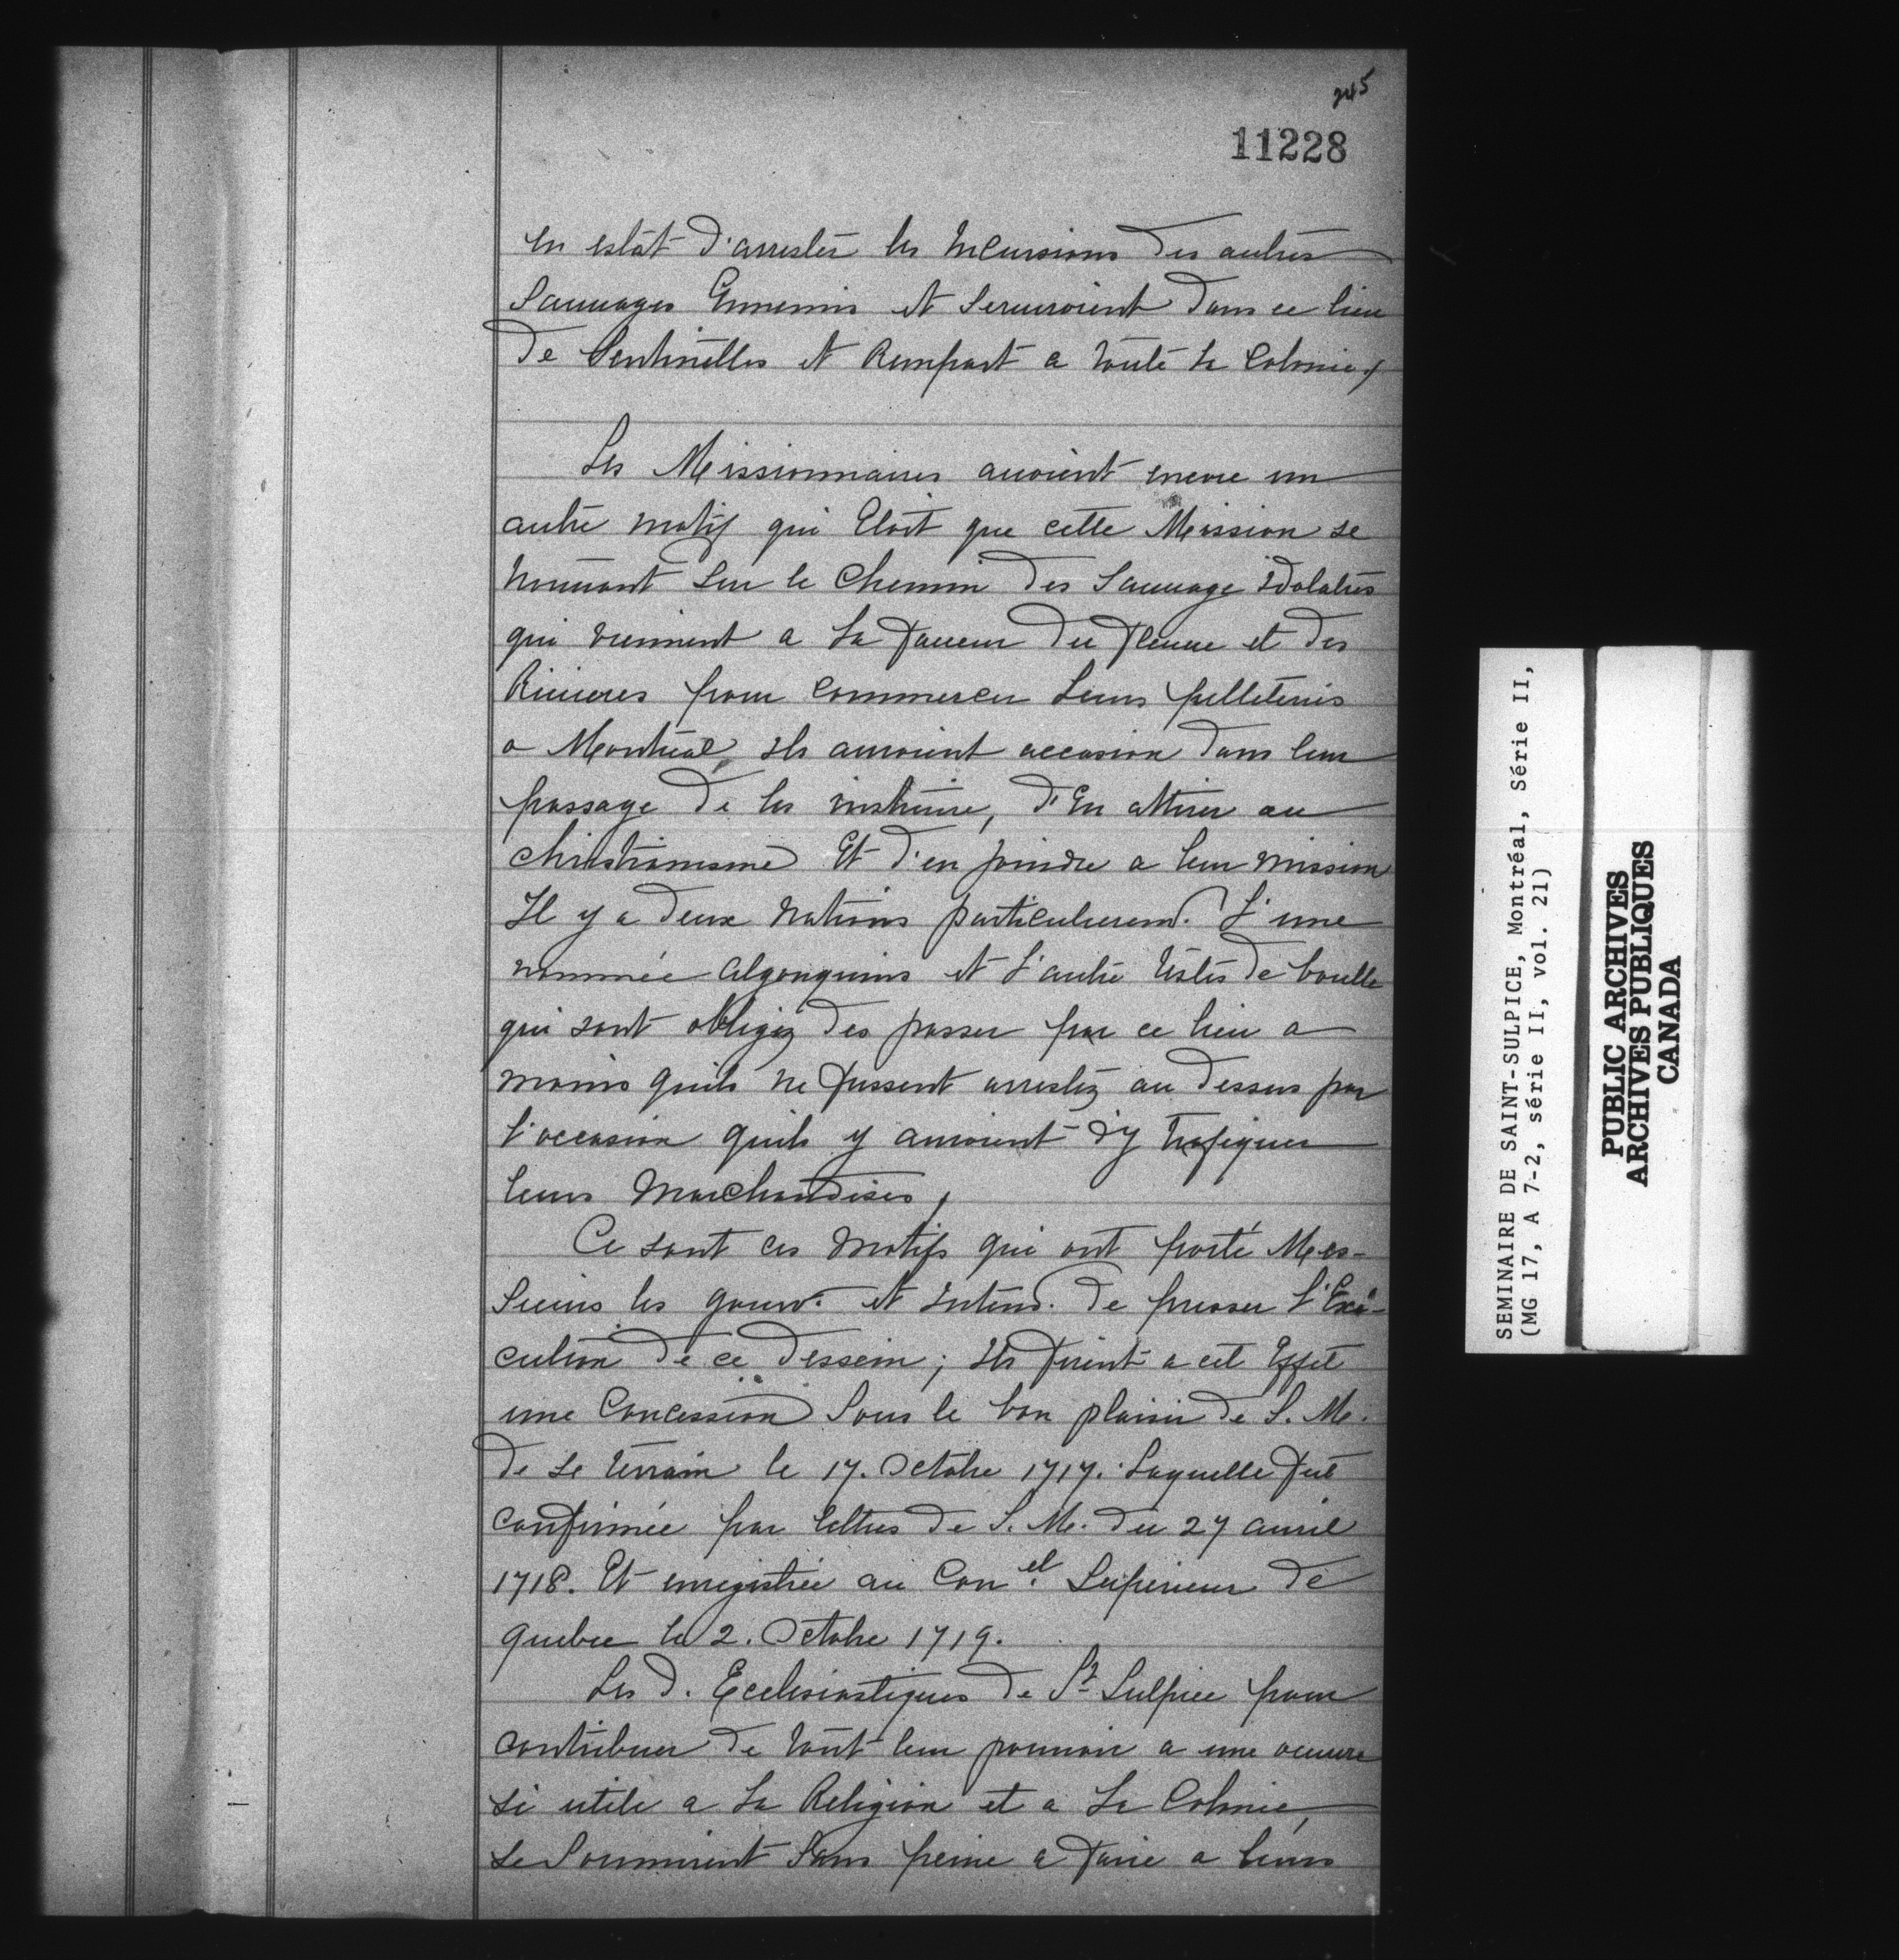 245
11228
en estat d'arrester les Incursions des autres
Sauuages Ennemis et Seruiroient dans ce lieu
de Sentinelles et Rempart a toute la Colonie,
Les Missionnaires auoient encore un
autre motif qui Etoit que cette Mission se
trouuant sur le Chemin des Sauuage idolatres
qui viennent a la faueur du fleuue et des
Riuieres pour Commercer leurs pelleteries
a Montreal, ils auroient occasion dans leur
passage de les instruire, d'En attirer au
christianisme Et d'en joindre a leur mission
Il y a deux nations particulierem. L'une
nommée algonquins et l'autre testes de boulle
qui sont obligez des passer par ce lieu a
moins quils ne fussent arrestez au dessus par
l'occasion quils y auroient d'y trafiquer
leurs marchandises,
Ce sont ces motifs qui ont porté Mes-
sieurs les gouv. et intend. de presser l'Exé-
cution de ce dessein; ils firent a cet effet
une Concession Sous le bon plaisir de S. M.
de se terrain le 17. Octobre 1717. Laquelle fut
confirmée par lettres de S. M. du 27 auril
1718. Et enregistrée au Con.el Superieur de
quebec le 2. Octobre 1719.
Les d. Ecclesiastiques de St Sulpice pour
contribuer de tout leur pouuoir a une oeuure
si utile a la Religion et a la Colonie,
se Soumirent Sans peine a faire a leurs
SEMINAIRE DE SAINT-SULPICE, Montréal, Série II,
(MG 17, A 7-2, série II, vol. 21)
PUBLIC ARCHIVES
ARCHIVES PUBLIQUES
CANADA